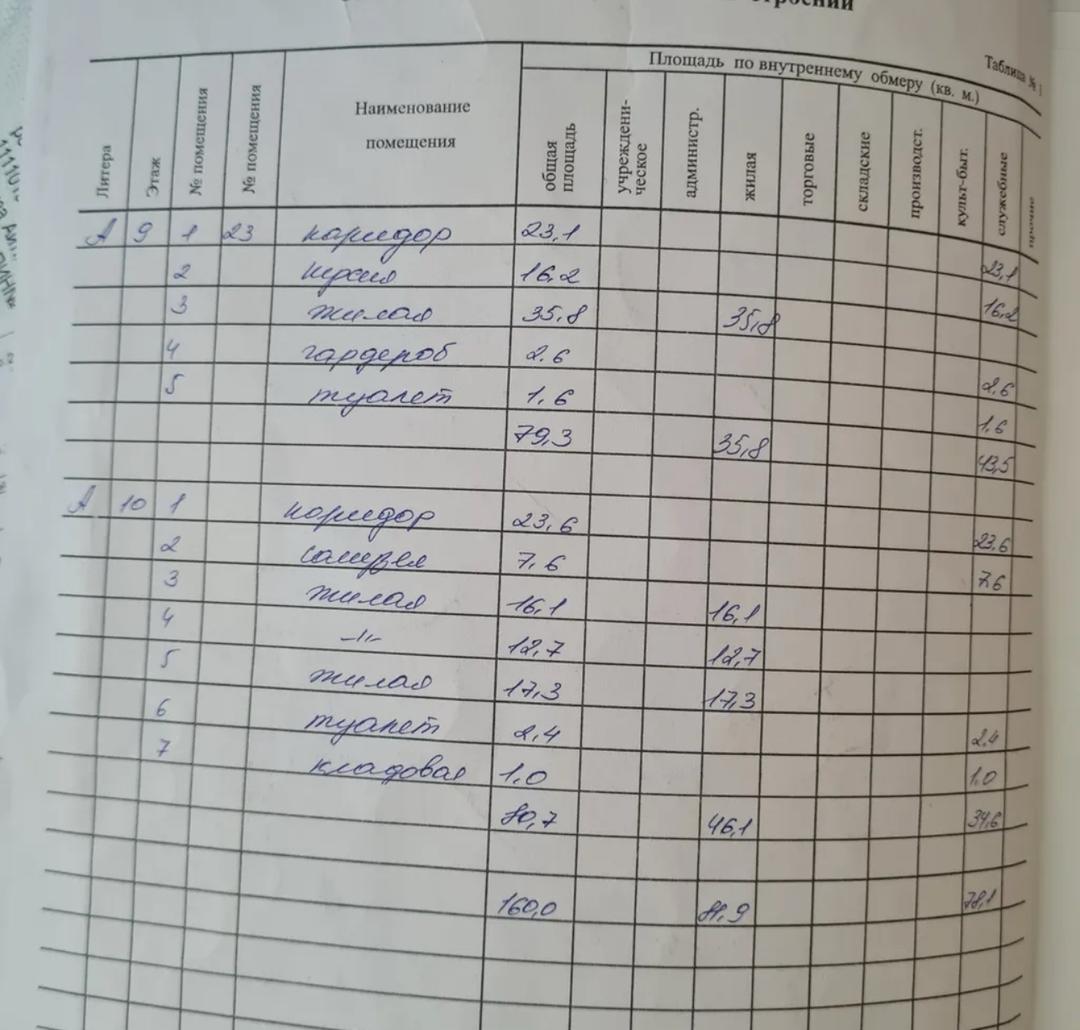 строений
Таблица № 1
Литера Этаж № помещения № помещения Наименование помещения Площадь по внутреннему обмеру (кв. м.)
общая площадь учреждени-ческое администр. жилая торговые складские производст. культ-быт. служебные прочие
А 9 1 23 коридор 23,1 23,1
2 кухня 16,2 16,2
3 жилая 35,8 35,8
4 гардероб 2.6 2,6
5 туалет 1,6 1,6
79,3 35,8 43,5
А 10 1 коридор 23,6 23,6
2 санузел 7,6 7,6
3 жилая 16,1 16,1
4 -//- 12,7 12,7
5 жилая 17,3 17,3
6 туалет 2,4 2,4
7 кладовая 1.0 1.0
80,7 46,1 34,6
160,0 81,9 78,1